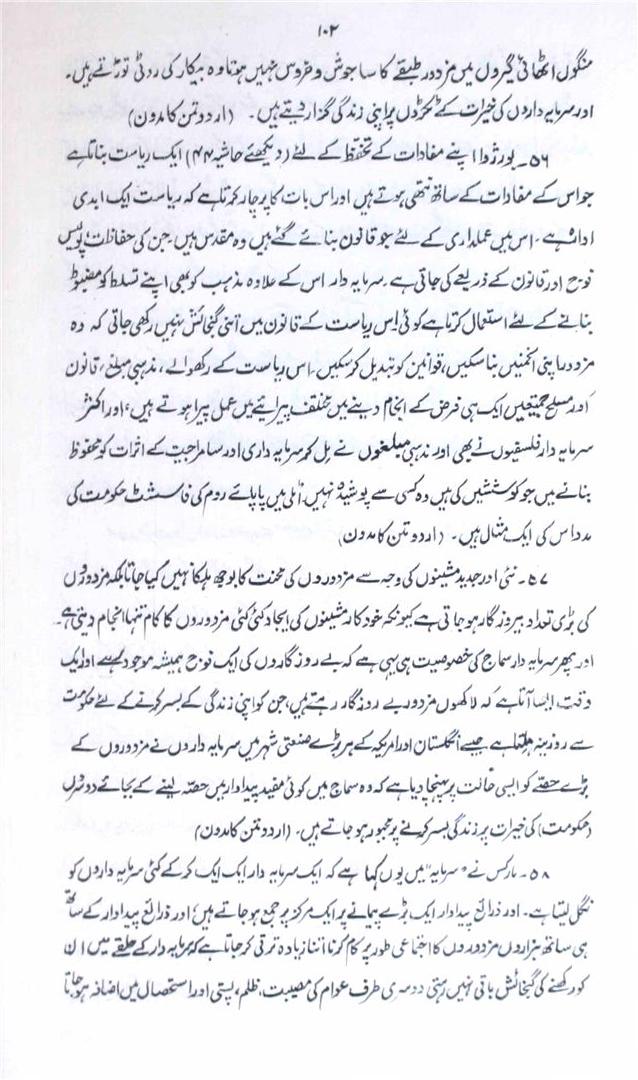 ۱۰۲
منگوں اٹھائی گیروں میں مزدور طبقے کا سا جوش و خروس نہیں ہوتا وہ بیکار کی روٹی توڑتے ہیں۔
اور سرمایہ داروں کی خیرات کے ٹکڑوں پر اپنی زندگی گزار دیتے ہیں۔ (اردو متن کا مدون)
۵۶۔ بورژوا اپنے مفادات کے تحفظ کے لئے (دیکھئے حاشیہ ۴۴) ایک ریاست بناتا ہے
جو اس کے مفادات کے ساتھ نتھی ہوتے ہیں اور اس بات کا پرچار کرتا ہے کہ ریاست ایک ابدی
ادارہ ہے۔ اس میں عملداری کے لئے جو قانون بنائے گئے ہیں وہ مقدس ہیں۔ جن کی حفاظت، پولیس
فوج اور قانون کے ذریعے کی جاتی ہے۔ سرمایہ دار اس کے علاوہ مذہب کو بھی اپنے تسلط کو مضبوط
بنانے کے لئے استعمال کرتا ہے کوئی! اس ریاست کے قانون میں اتنی گنجائش نہیں رکھی جاتی کہ وہ
مزدور اپنی انجمنیں بنا سکیں، قوانین کو تبدیل کر سکیں۔ اس ریاست کے رکھوالے، مذہبی مبلغ، قانون
اور مسلح جمیعتیں ایک ہی فرض کے انجام دینے میں مختلف پیرائے میں عمل پیرا ہوتے ہیں؛ اور اکثر
سرمایہ دار فلسفیوں نے بھی اور مذہبی مبلغوں نے مل کر سرمایہ داری اور سامراجیت کے اثرات کو محفوظ
بنانے میں جو کوششیں کی ہیں وہ کسی سے پوشیدہ نہیں، اٹلی میں پاپائے روم کی فاسشٹ حکومت کی
مدد اس کی ایک مثال ہیں۔ (اردو متن کا مدون)
۵۷۔ نئی اور جدید مشینوں کی وجہ سے مزدوروں کی محنت کا بوجھ ہلکا نہیں کیا جاتا بلکہ مزدوروں
کی بڑی تعداد بیروزگار ہو جاتی ہے کیونکہ خود کار مشینوں کی ایجاد کئی کئی مزدوروں کا کام تنہا انجام دیتی ہے۔
اور پھر سرمایہ دار سماج کی خصوصیت ہی یہی ہے کہ بے روزگاروں کی ایک فوج ہمیشہ موجود رہے اور ایک
وقت ایسا آتا ہے کہ لاکھوں مزدور بے روزگار رہتے ہیں، جن کو اپنی زندگی کے بسر کرنے کے لئے حکومت
سے روزینہ ملتا ہے جیسے انگلستان اور امریکہ کے ہر بڑے صنعتی شہر میں سرمایہ داروں نے مزدوروں کے
بڑے حصّے کو ایسی حالت پر پہنچا دیا ہے کہ وہ سماج میں کوئی مفید پیداوار میں حصّہ لینے کے بجائے دوسروں
(حکومت) کی خیرات پر زندگی بسر کرنے پر مجبور ہو جاتے ہیں۔ (اردو متن کا مدون)
۵۸۔ مارکس نے "سرمایہ" میں یوں کہا ہے کہ ایک سرمایہ دار ایک ایک کر کے کئی سرمایہ داروں کو
نگل لیتا ہے۔ اور ذرائع پیداوار ایک بڑے پیمانے پر ایک مرکز پر جمع ہو جاتے ہیں؛ اور ذرائع پیداوار کے ساتھ
ہی ساتھ ہزاروں مزدوروں کا اجتماعی طور پر کام کرنا اتنا زیادہ ترقی کر جاتا ہے کہ سرمایہ دار کے حلقے میں ان
کو رکھنے کی گنجائش باقی نہیں رہتی دوسری طرف عوام کی مصیبت، ظلم، پستی اور استحصال میں اضافہ ہو جاتا